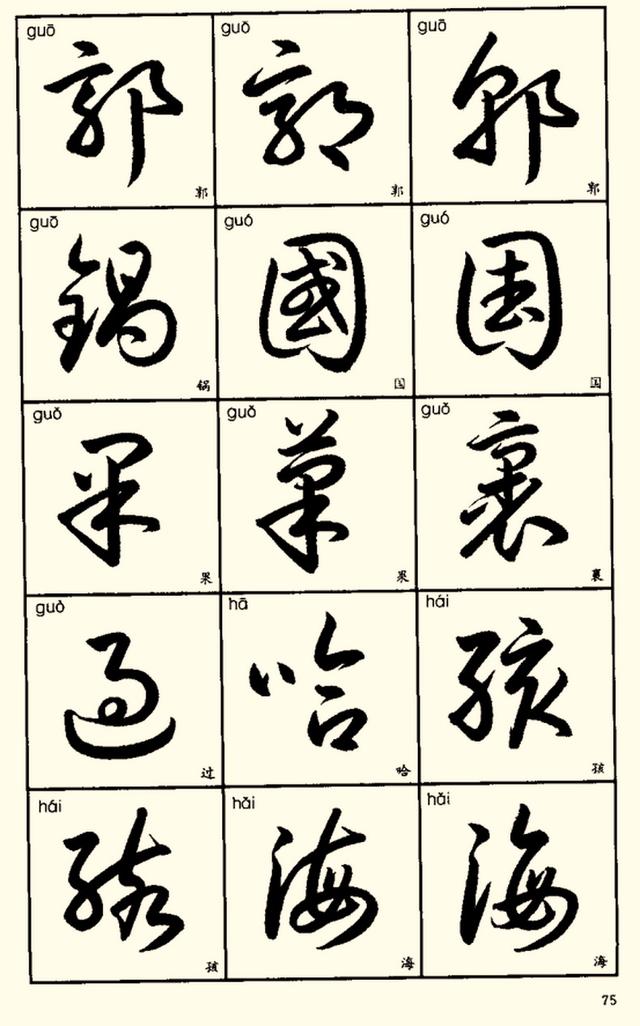 guō guō guō
郭 郭 郭
郭 郭 郭
guō guó guó
鍋 國 国
锅 国 国
guǒ guǒ guǒ
果 菓 裹
果 果 裹
guò hā hái
过 哈 孩
过 哈 孩
hái hǎi hǎi
孩 海 海
孩 海 海
75